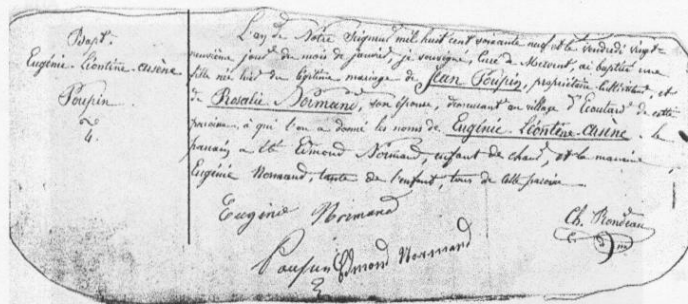 Bapt.
Eugénie-Léontine-Arsène
Poupin
4.
L'an de Notre Seigneur mil huit cent soixante neuf et le vendredi vingt-
neuvième jour du mois de janvier, je soussigné, Curé de Mervent, ai baptisé une
fille née hier du légitime mariage de Jean Poupin, propriétaire cultivateur et
de Rosalie Normand, son épouse, demeurant au village d'Ecoutard de cette
paroisse, à qui l'on a donné les noms de Eugénie-Léontine-Arsène. Le
parrain a été Edmond Normand, enfant de chœur, et la marraine
Eugénie Normand, tante de l'enfant, tous de cette paroisse
Eugénie Normand
Ch. Rondeau
Poupin Edmond Normand